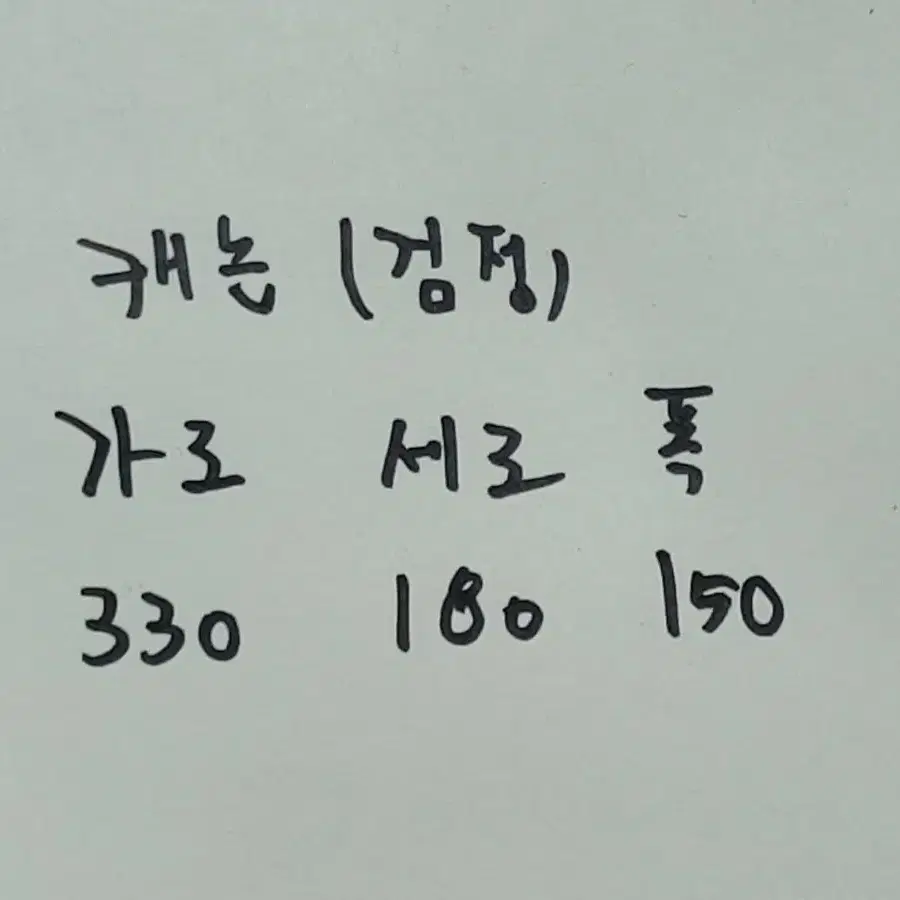 캐논 (검정)
가로 세로 폭
330 180 150